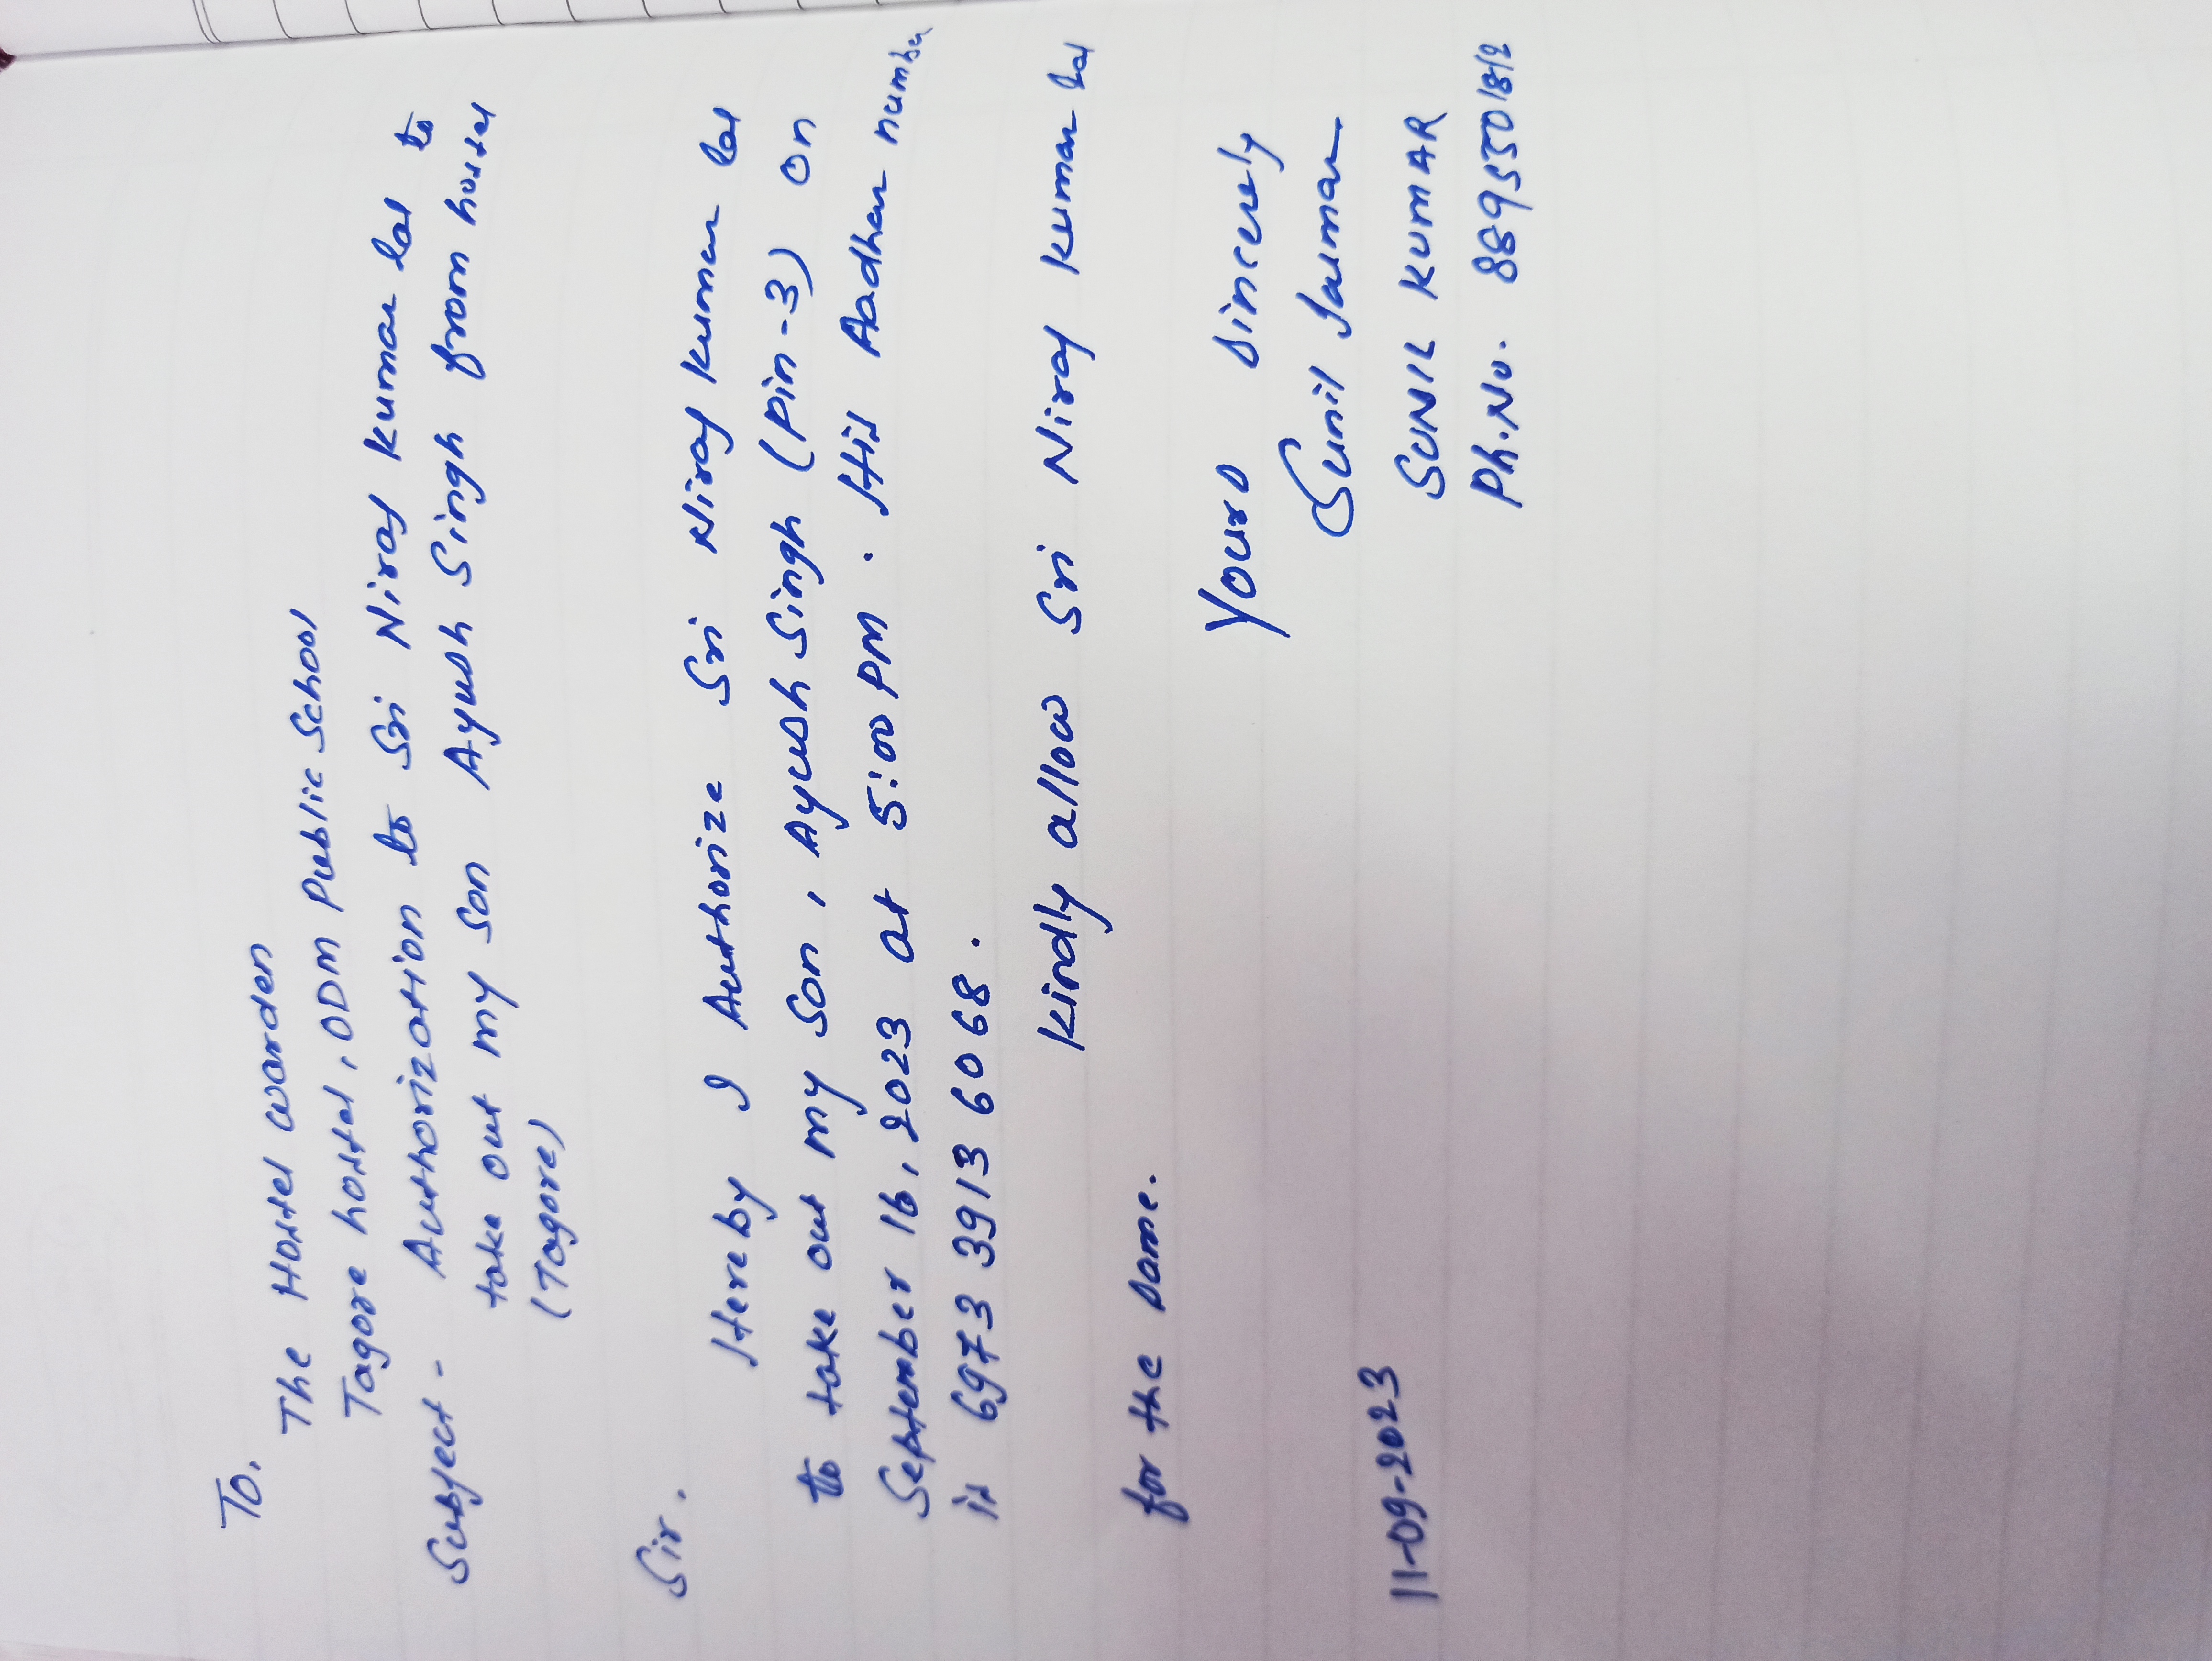 To,
The Hostel warden
Tagore hostel, ODM Public School
Subject - Authorization to Sri Niraj Kumar Lal to
take out my son Ayush Singh from hostel
(Tagore)
Sir,
Hereby I Authorize Sri Niraj Kumar Lal
to take out my son, Ayush Singh (Pin-3) on
September 16, 2023 at 5:00 PM. His Aadhar number
is 6973 3913 6068.
Kindly allow Sri Niraj Kumar Lal
for the same.
Yours Sincerely
Sunil Kumar
11-09-2023
SUNIL KUMAR
Ph.No. 8895501812